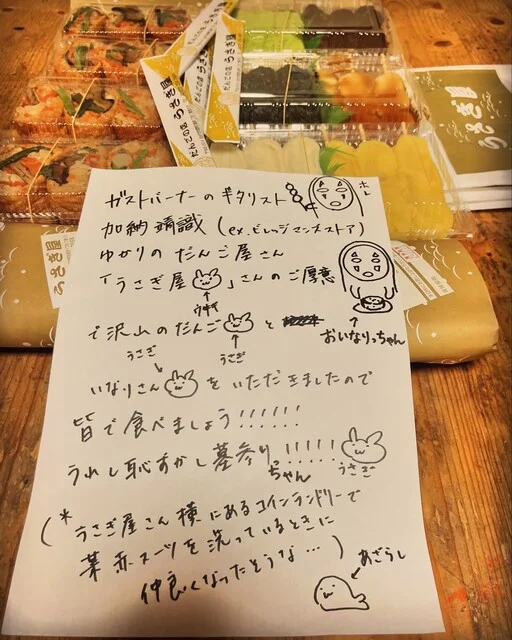 だんごの店 うさぎ屋
うさぎ屋
うさぎ屋
うさぎ屋
ガストバーナーのギタリスト
ホレ
加納靖識 (ex.ビレッジマンズストア)
ゆかりのだんご屋さん
「うさぎ屋」さんのご厚意
ウサギ
で沢山のだんごと
おいなりっちゃん
うさぎ
うさぎ
いなりさんをいただきましたので
皆で食べましょう!!!!!!
うれし恥ずかし墓参り!!!!!
ちゃん
うさぎ
(*うさぎ屋さん横にあるコインランドリーで
某赤スーツを洗っているときに
仲良くなったそうな…)
あざらし